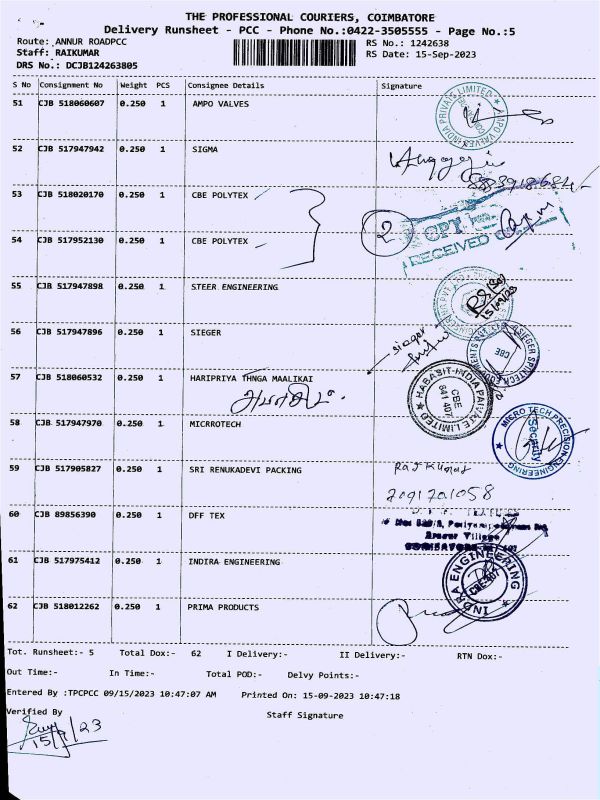 THE PROFESSIONAL COURIERS, COIMBATORE
Delivery Runsheet - PCC - Phone No.:0422-3505555 - Page No.:5
Route: ANNUR ROADPCC RS No.: 1242638
Staff: RAIKUMAR RS Date: 15-Sep-2023
DRS No.: DCJB124263805
S No Consignment No Weight PCS Consignee Details Signature
51 CJB 518060607 0.250 1 AMPO VALVES
AMPO VALVES INDIA PRIVATE LIMITED
52 CJB 517947942 0.250 1 SIGMA
53 CJB 518020170 0.250 1 CBE POLYTEX
2
CPT
RECEIVED
54 CJB 517952130 0.250 1 CBE POLYTEX
55 CJB 517947898 0.250 1 STEER ENGINEERING
15/09/23
56 CJB 517947896 0.250 1 SIEGER
sieger
CBE
57 CJB 518060532 0.250 1 HARIPRIYA THNGA MAALIKAI
HABASIT-INDIA PRIVATE LIMITED
CBE
641 407
58 CJB 517947970 0.250 1 MICROTECH
MICRO TECH PRECISION ENGINEERING
Security
59 CJB 517905827 0.250 1 SRI RENUKADEVI PACKING
Raj Kumar
60 CJB 89856390 0.250 1 DFF TEX
Annur Village
61 CJB 517975412 0.250 1 INDIRA ENGINEERING
INDRA ENGINEERING
CBE-407
62 CJB 518012262 0.250 1 PRIMA PRODUCTS
Tot. Runsheet:- 5 Total Dox:- 62 I Delivery:- II Delivery:- RTN Dox:-
Out Time:- In Time:- Total POD:- Delvy Points:-
Entered By :TPCPCC 09/15/2023 10:47:07 AM Printed On: 15-09-2023 10:47:18
Verified By Staff Signature
15/9/23